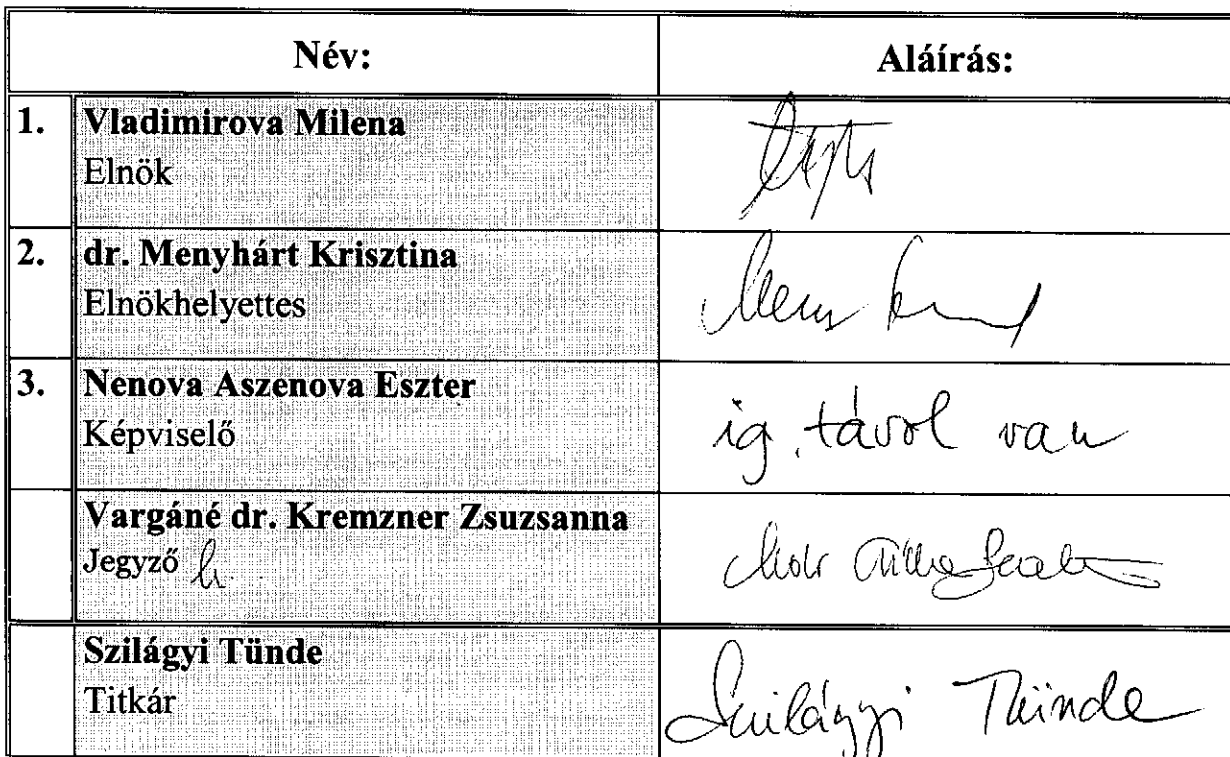 Név: Aláírás:
1. Vladimirova Milena
Elnök
2. dr. Menyhárt Krisztina
Elnökhelyettes
3. Nenova Aszenova Eszter
Képviselő
ig. távol van
Vargáné dr. Kremzner Zsuzsanna
Jegyző h.
Szilágyi Tünde
Titkár
Szilágyi Tünde